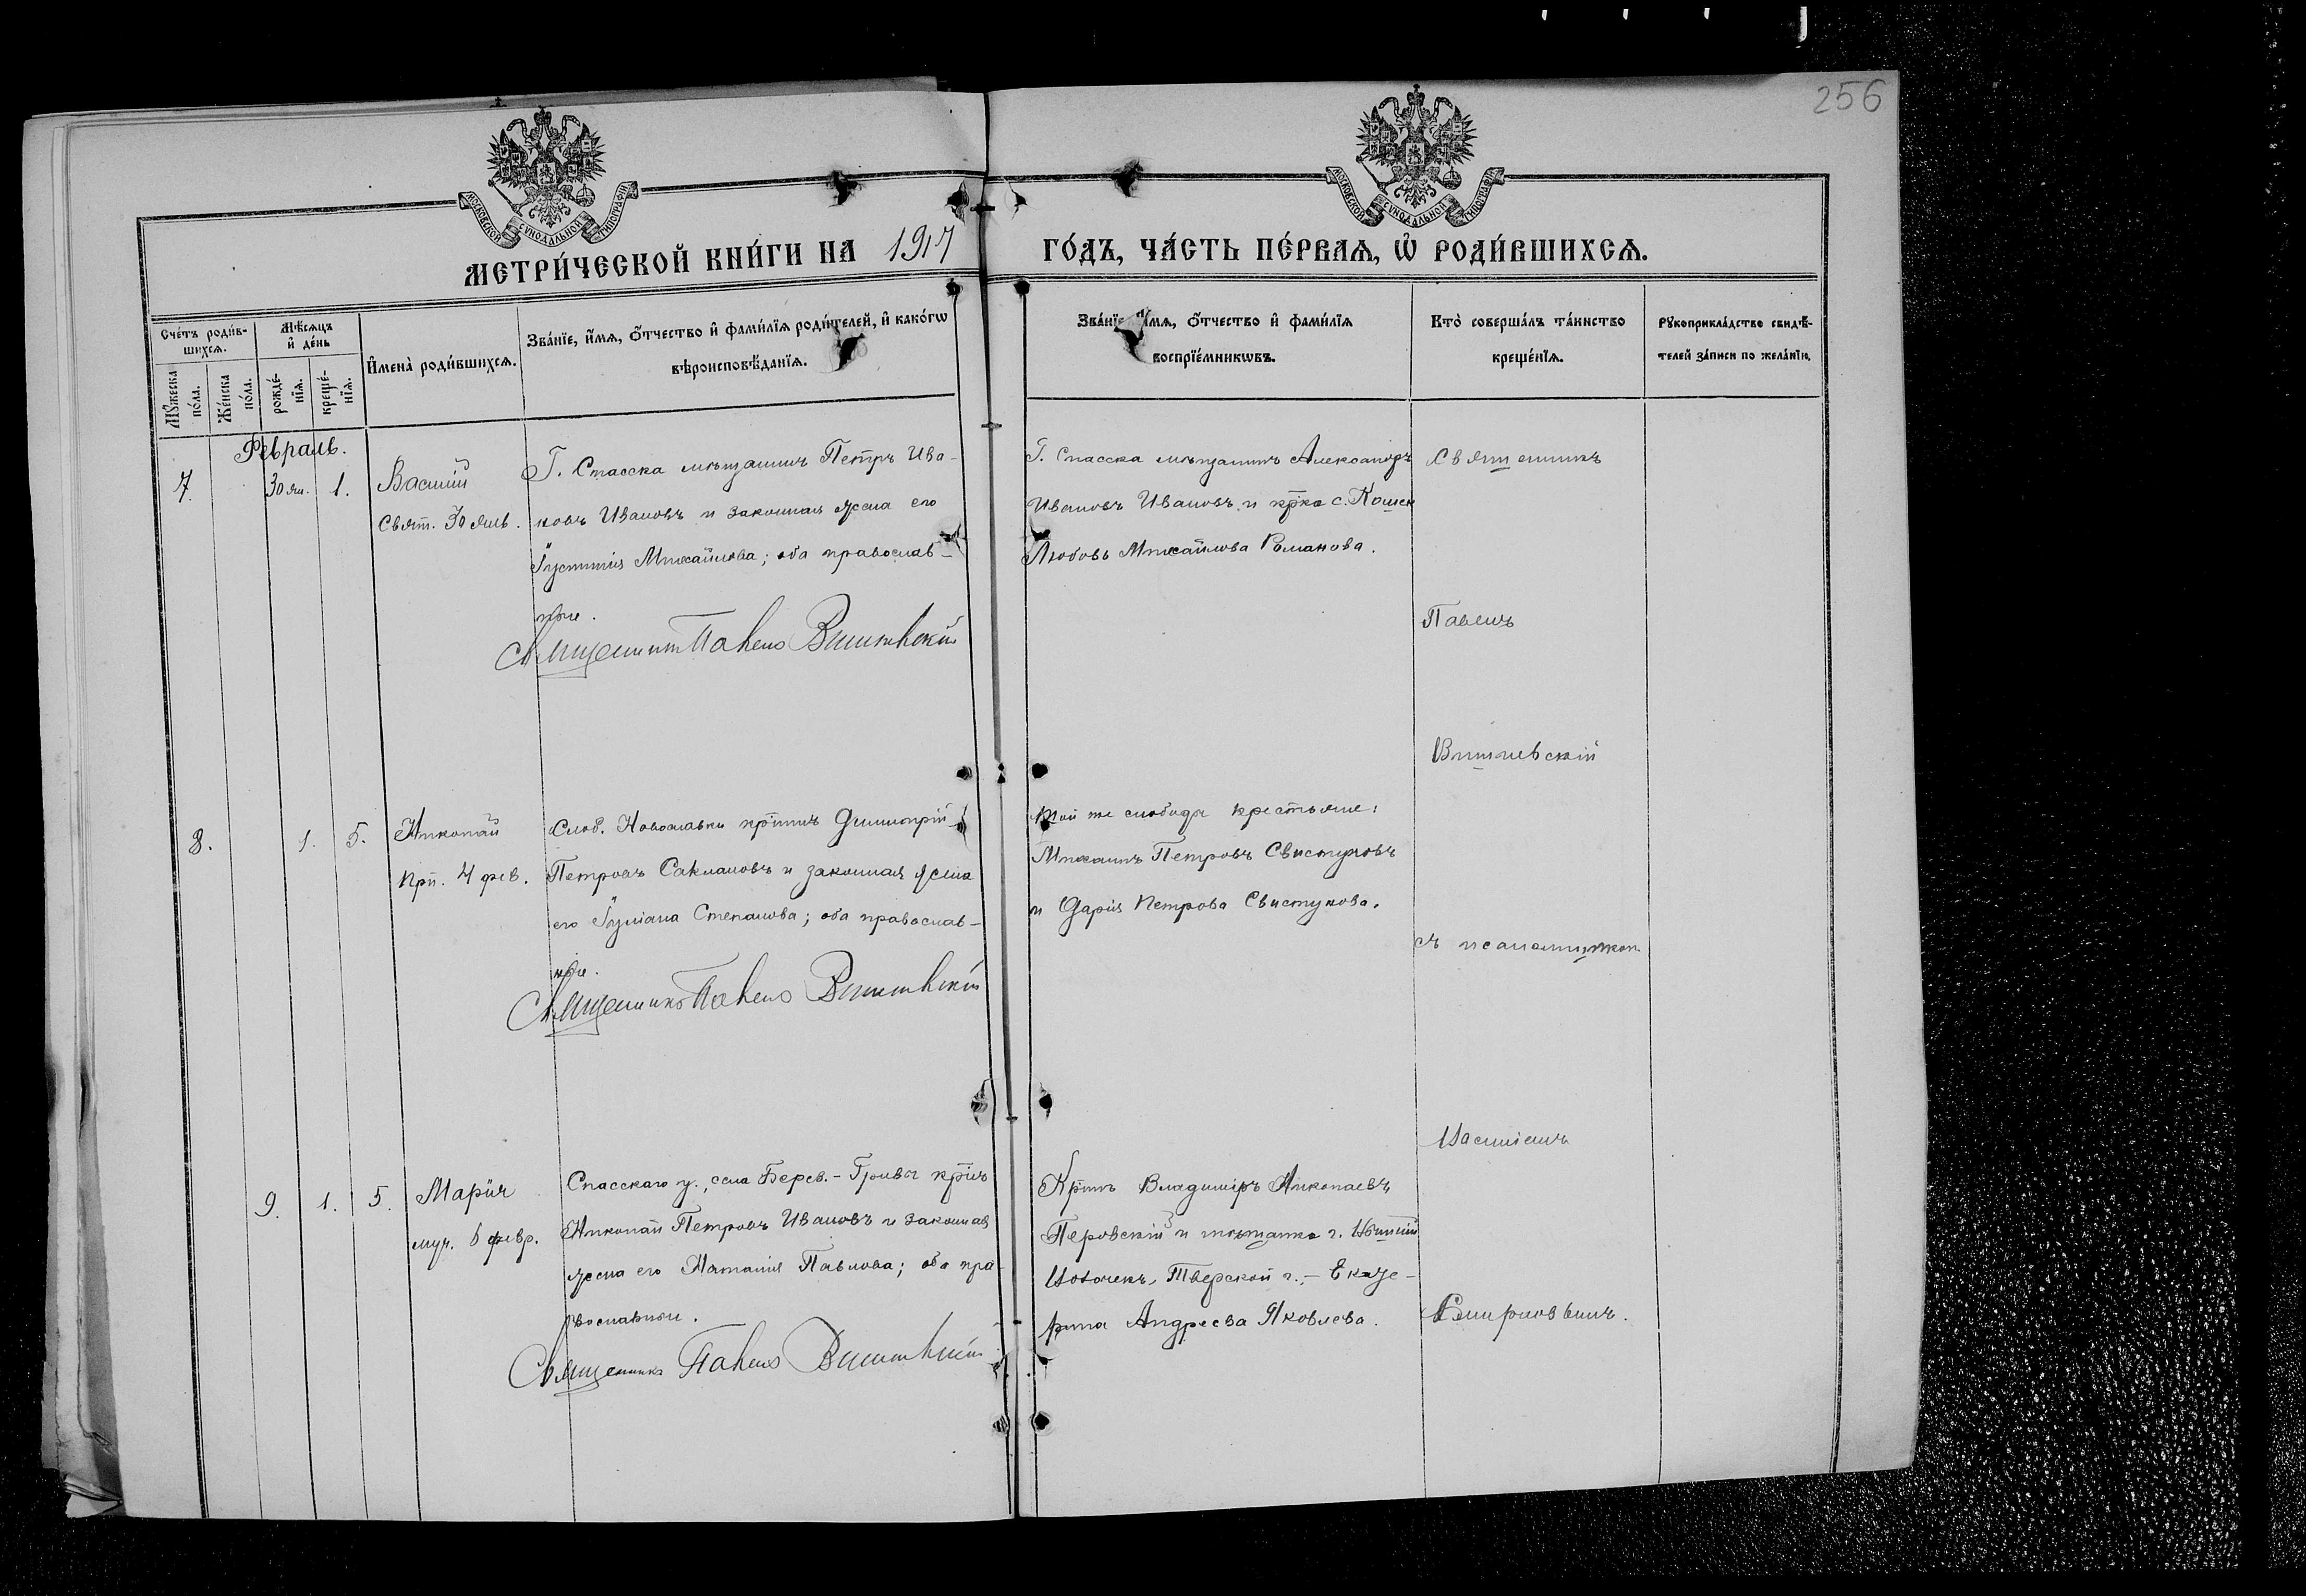 256
МОСКОВСКОЙ СѴНОДАЛЬНОЙ ТИПОГРАФІИ
МОСКОВСКОЙ СѴНОДАЛЬНОЙ ТИПОГРАФІИ
МЕТРИ́ЧЕСКОЙ КНИ́ГИ НА 1917
ГО́ДЪ, ЧА́СТЬ ПЕ́РВАѦ, Ѽ РОДИ́ВШИХСѦ.
Сче́тъ роди́в-
шихсѧ.
Мꙋ́жеска по́ла.
Же́нска по́ла.
Мѣ́сѧцъ и҆ де́нь
рожде́-нїѧ.
креще́-нїѧ.
И҆мена̀ роди́вшихсѧ.
Зва́нїе, и҆́мѧ, ѻ҆́тчество и҆ фами́лїѧ роди́телей, и҆ како́гѡ
вѣроисповѣ́данїѧ.
Зва́нїе, и҆́мѧ, ѻ҆́тчество и҆ фами́лїѧ
воспрїе́мникѡвъ.
Кто̀ соверша́лъ та́инство
креще́нїѧ.
Рꙋкоприкла́дство свидѣ́-
телей за́писи по жела́нїю.
Февраль.
7. 30 ян. 1.
Василій
Свят. 30 янв.
Г. Спасска мѣщанинъ Петръ Ива-
новъ Ивановъ и законная жена его
Іустинія Михайлова; оба православ-
ные.
Священникъ Павелъ Вишневскій
Г. Спасска мѣщанинъ Александръ
Ивановъ Ивановъ и кр҃ка с. Кошек
Любовь Михайлова Романова.
Священникъ
Павелъ
Вишневскій
съ псаломщиком
Василіемъ
Смирновымъ.
8. 1. 5.
Николай
Прп. 4 фев.
Слоб. Новославки кр҃нинъ Димитрій
Петровъ Саклановъ и законная жена
его Іуліана Степанова; оба православ-
ные.
Священникъ Павелъ Вишневскій
Той же слободы крестьяне:
Михаилъ Петровъ Свистуновъ
и Дарія Петрова Свистунова.
9. 1. 5.
Марія
муч. 6 февр.
Спасскаго у., села Берез.-Гривы кр҃нъ
Николай Петровъ Ивановъ и законная
жена его Наталія Павлова; оба пра-
вославные.
Священникъ Павелъ Вишневскій
Кр҃нъ Владиміръ Николаевъ
Перовскій и мѣщанка г. Вышній
Волочекъ, Тверской г. - Екате-
рина Андреева Яковлева.